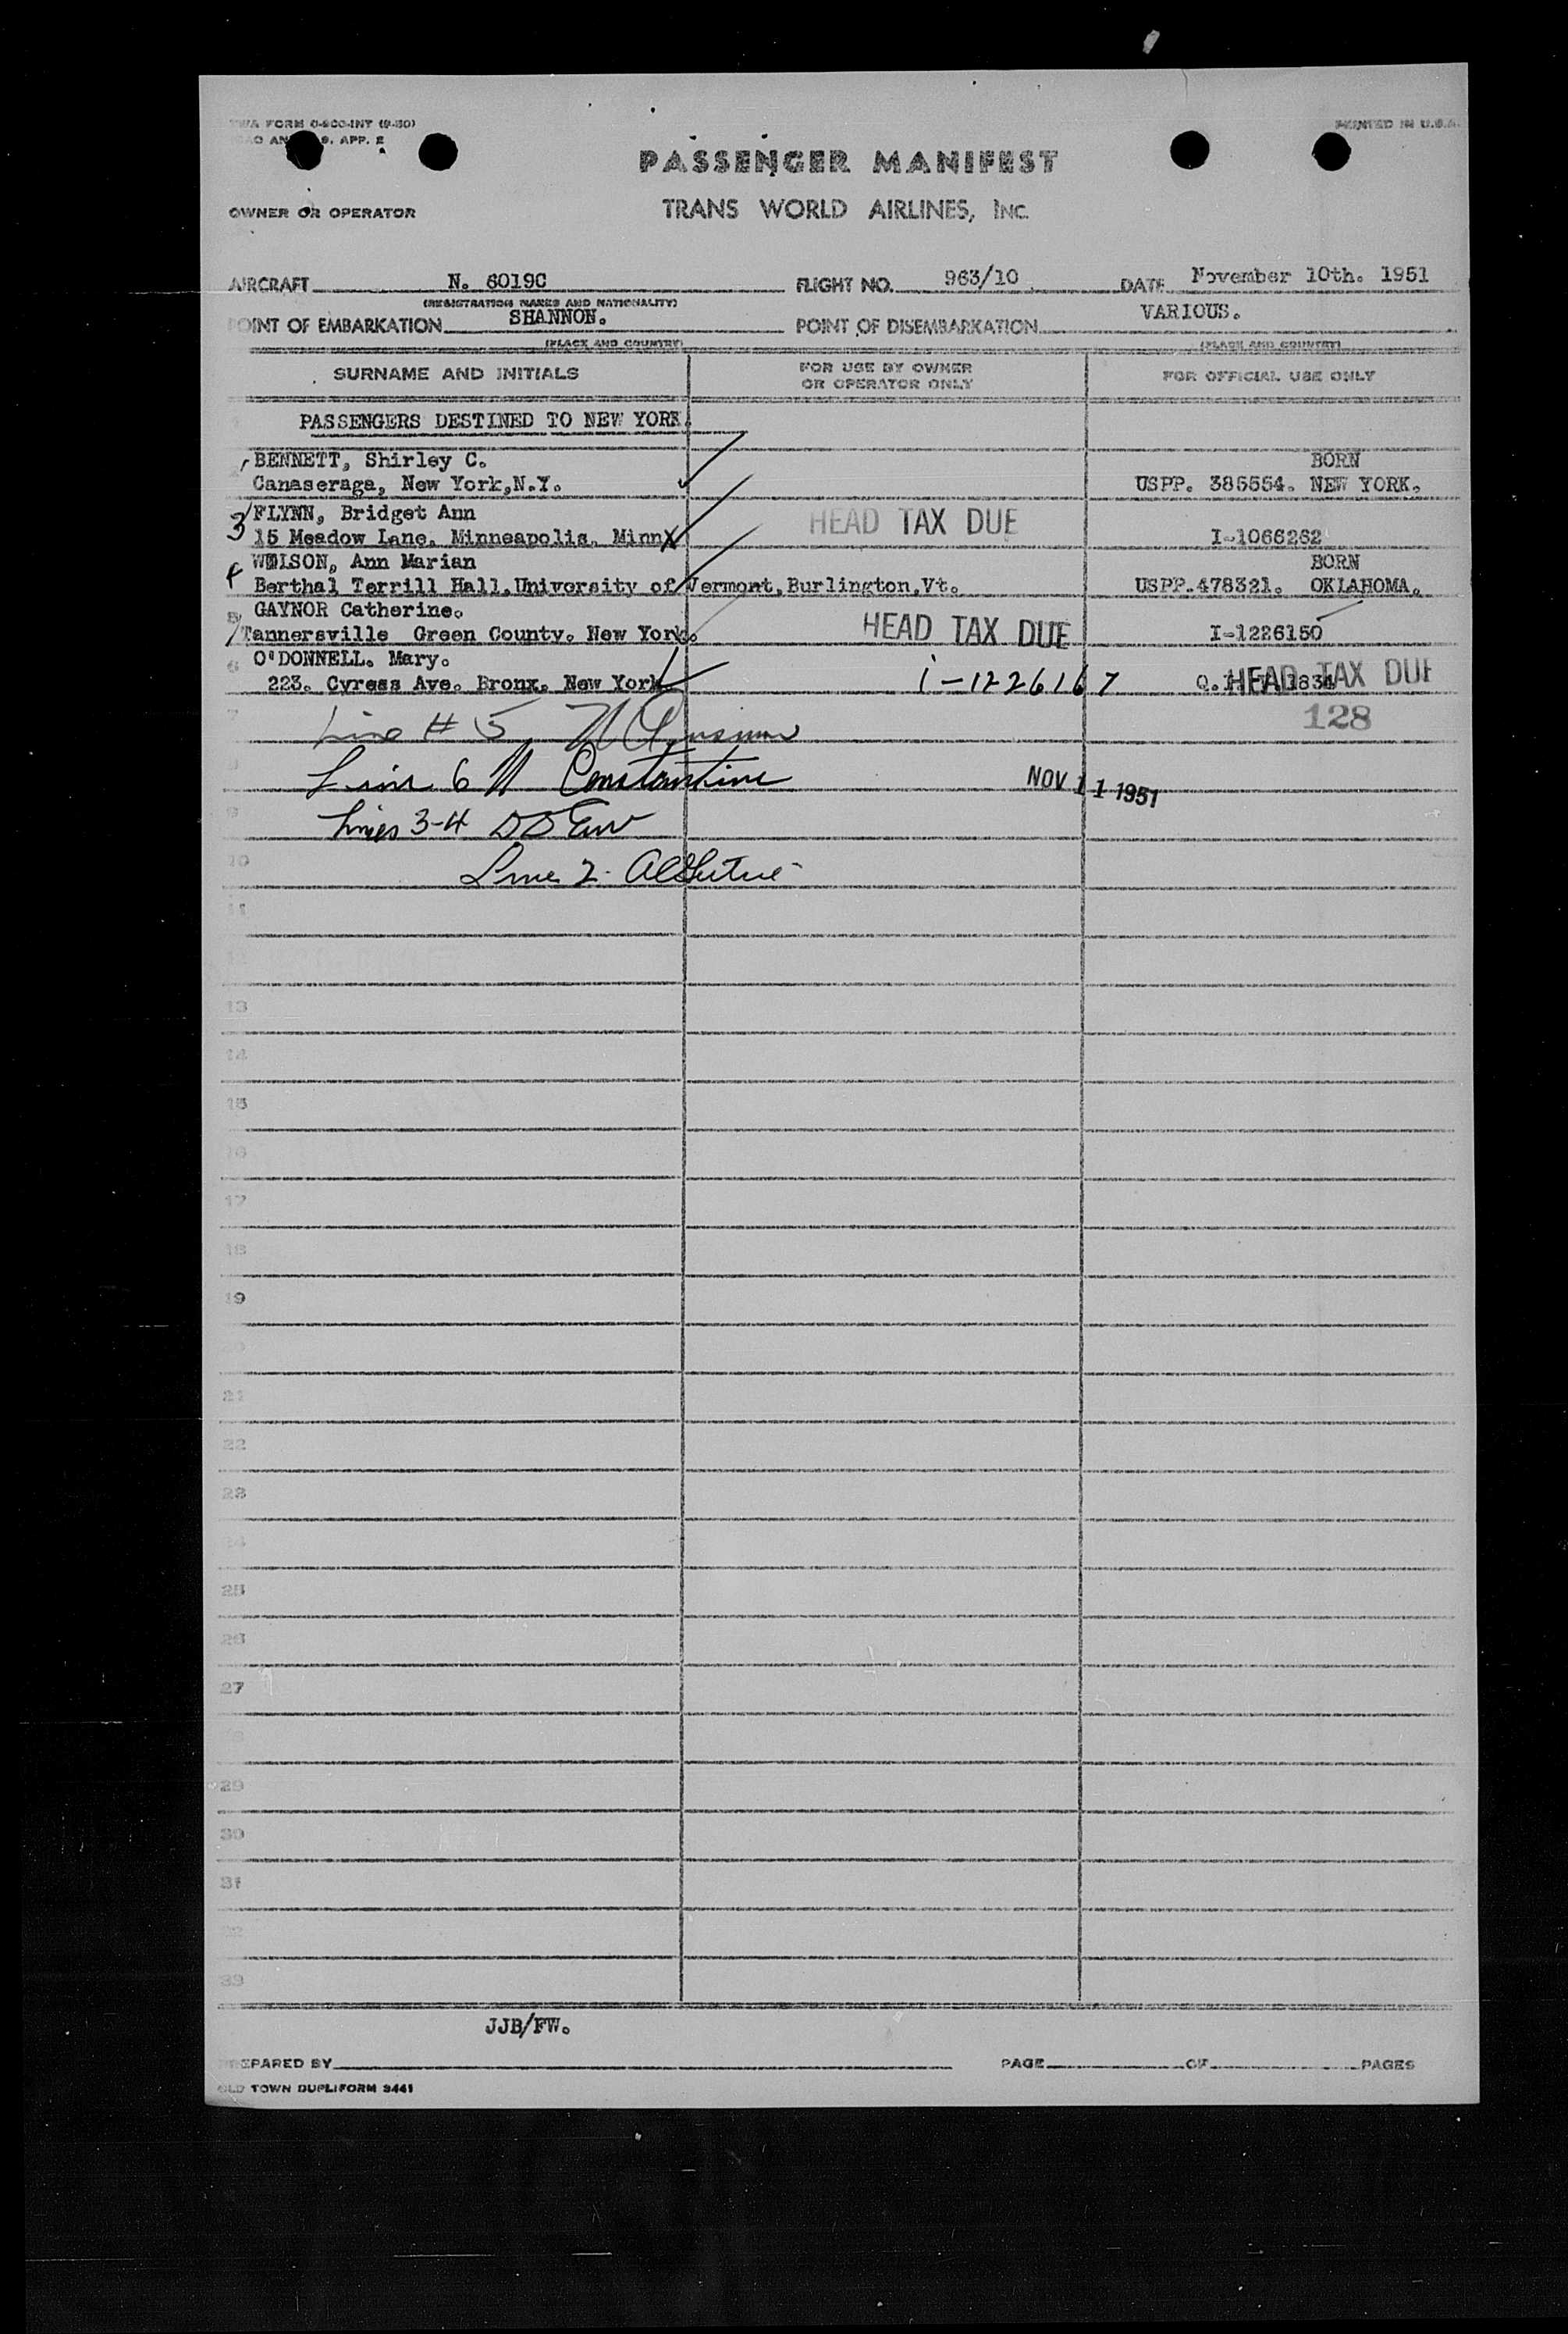 TWA FORM O-800-INT (9-50)
PRINTED IN U.S.A.
9. APP. E
PASSENGER MANIFEST
OWNER OR OPERATOR
TRANS WORLD AIRLINES, INC.
AIRCRAFT N. 6019C FLIGHT NO. 963/10 DATE November 10th. 1951
(REGISTRATION MARKS AND NATIONALITY)
POINT OF EMBARKATION SHANNON. POINT OF DISEMBARKATION VARIOUS.
(PLACE AND COUNTRY) (PLACE AND COUNTRY)
SURNAME AND INITIALS FOR USE BY OWNER OR OPERATOR ONLY FOR OFFICIAL USE ONLY
PASSENGERS DESTINED TO NEW YORK.
BENNETT, Shirley C. BORN
Canaseraga, New York,N.Y. USPP. 385554. NEW YORK.
3 FLYNN, Bridget Ann HEAD TAX DUE
15 Meadow Lane. Minneapolis. Minn I-1066262
4 WILSON, Ann Marian BORN
Berthal Terrill Hall,University of Vermont,Burlington,Vt. USPP.478321. OKLAHOMA.
5 GAYNOR Catherine. HEAD TAX DUE
Tannersville Green County. New York. I-1226150
6 O'DONNELL. Mary. HEAD TAX DUE
223. Cyress Ave. Bronx. New York i-1226167
7 Line # 5 128
Line 6 N Constantine NOV 11 1951
9 Lines 3-4
10 Line 2.
11
12
13
14
15
16
17
18
19
20
21
22
23
24
25
26
27
28
29
30
31
32
33
JJB/FW.
PREPARED BY PAGE OF PAGES
OLD TOWN DUPLIFORM 3441